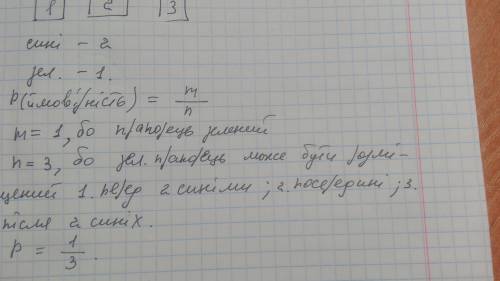 1 2 3
сині - 2
зел. - 1.
P(ймовірність) = m/n
m = 1, бо прапорець зелений
n = 3, бо зел. прапорець може бути розмі-
щений 1. перед 2 синіми; 2. посередині; 3.
після 2 синіх.
P = 1/3.